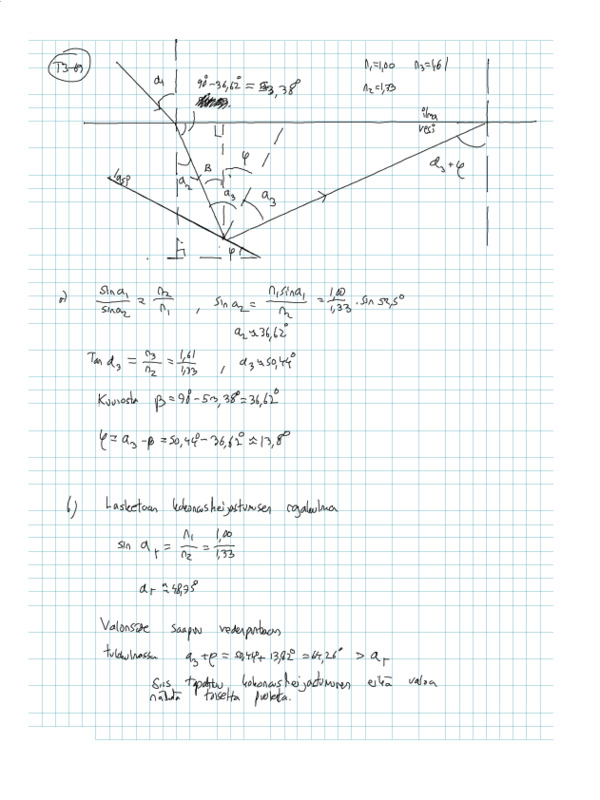 T3-69
n₁=1,00 n₃=1,61
n₂=1,33
α₁
90°-36,62°=53,38°
ilma
vesi
β φ
α₂ α₃ α₃
α₃+φ
lasi
φ
a) sinα₁/sinα₂ = n₂/n₁ , sinα₂ = n₁sinα₁/n₂ = 1,00/1,33 · sin 52,5°
α₂≈36,62°
Tan α₃ = n₃/n₂ = 1,61/1,33 , α₃≈50,44°
Kuvasta β=90°-53,38°=36,62°
φ=α₃-β=50,44°-36,62°≈13,8°
b) Lasketaan kokonaisheijastumisen rajakulma
sin αr = n₁/n₂ = 1,00/1,33
αr≈48,75°
Valonsäde saapuu vedenpintaan
tulokulmassa α₃+φ=50,44°+13,82°=64,26° > αr
Siis tapahtuu kokonaisheijastuminen eikä valoa
nähdä toiselta puolelta.